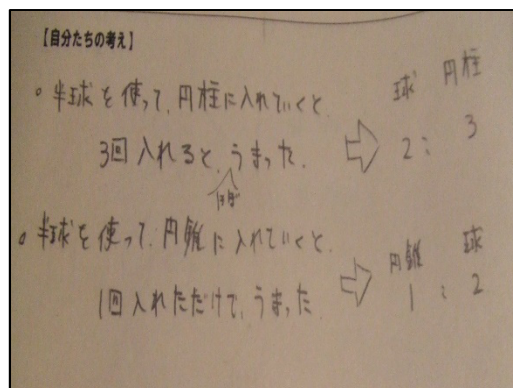 【自分たちの考え】
。半球を使って、円柱に入れていくと、
3回入れると、うまった。
ほぼ
⇨ 球 円柱
2 : 3
。半球を使って、円錐に入れていくと、
1回入れただけで、うまった
⇨ 円錐 球
1 : 2